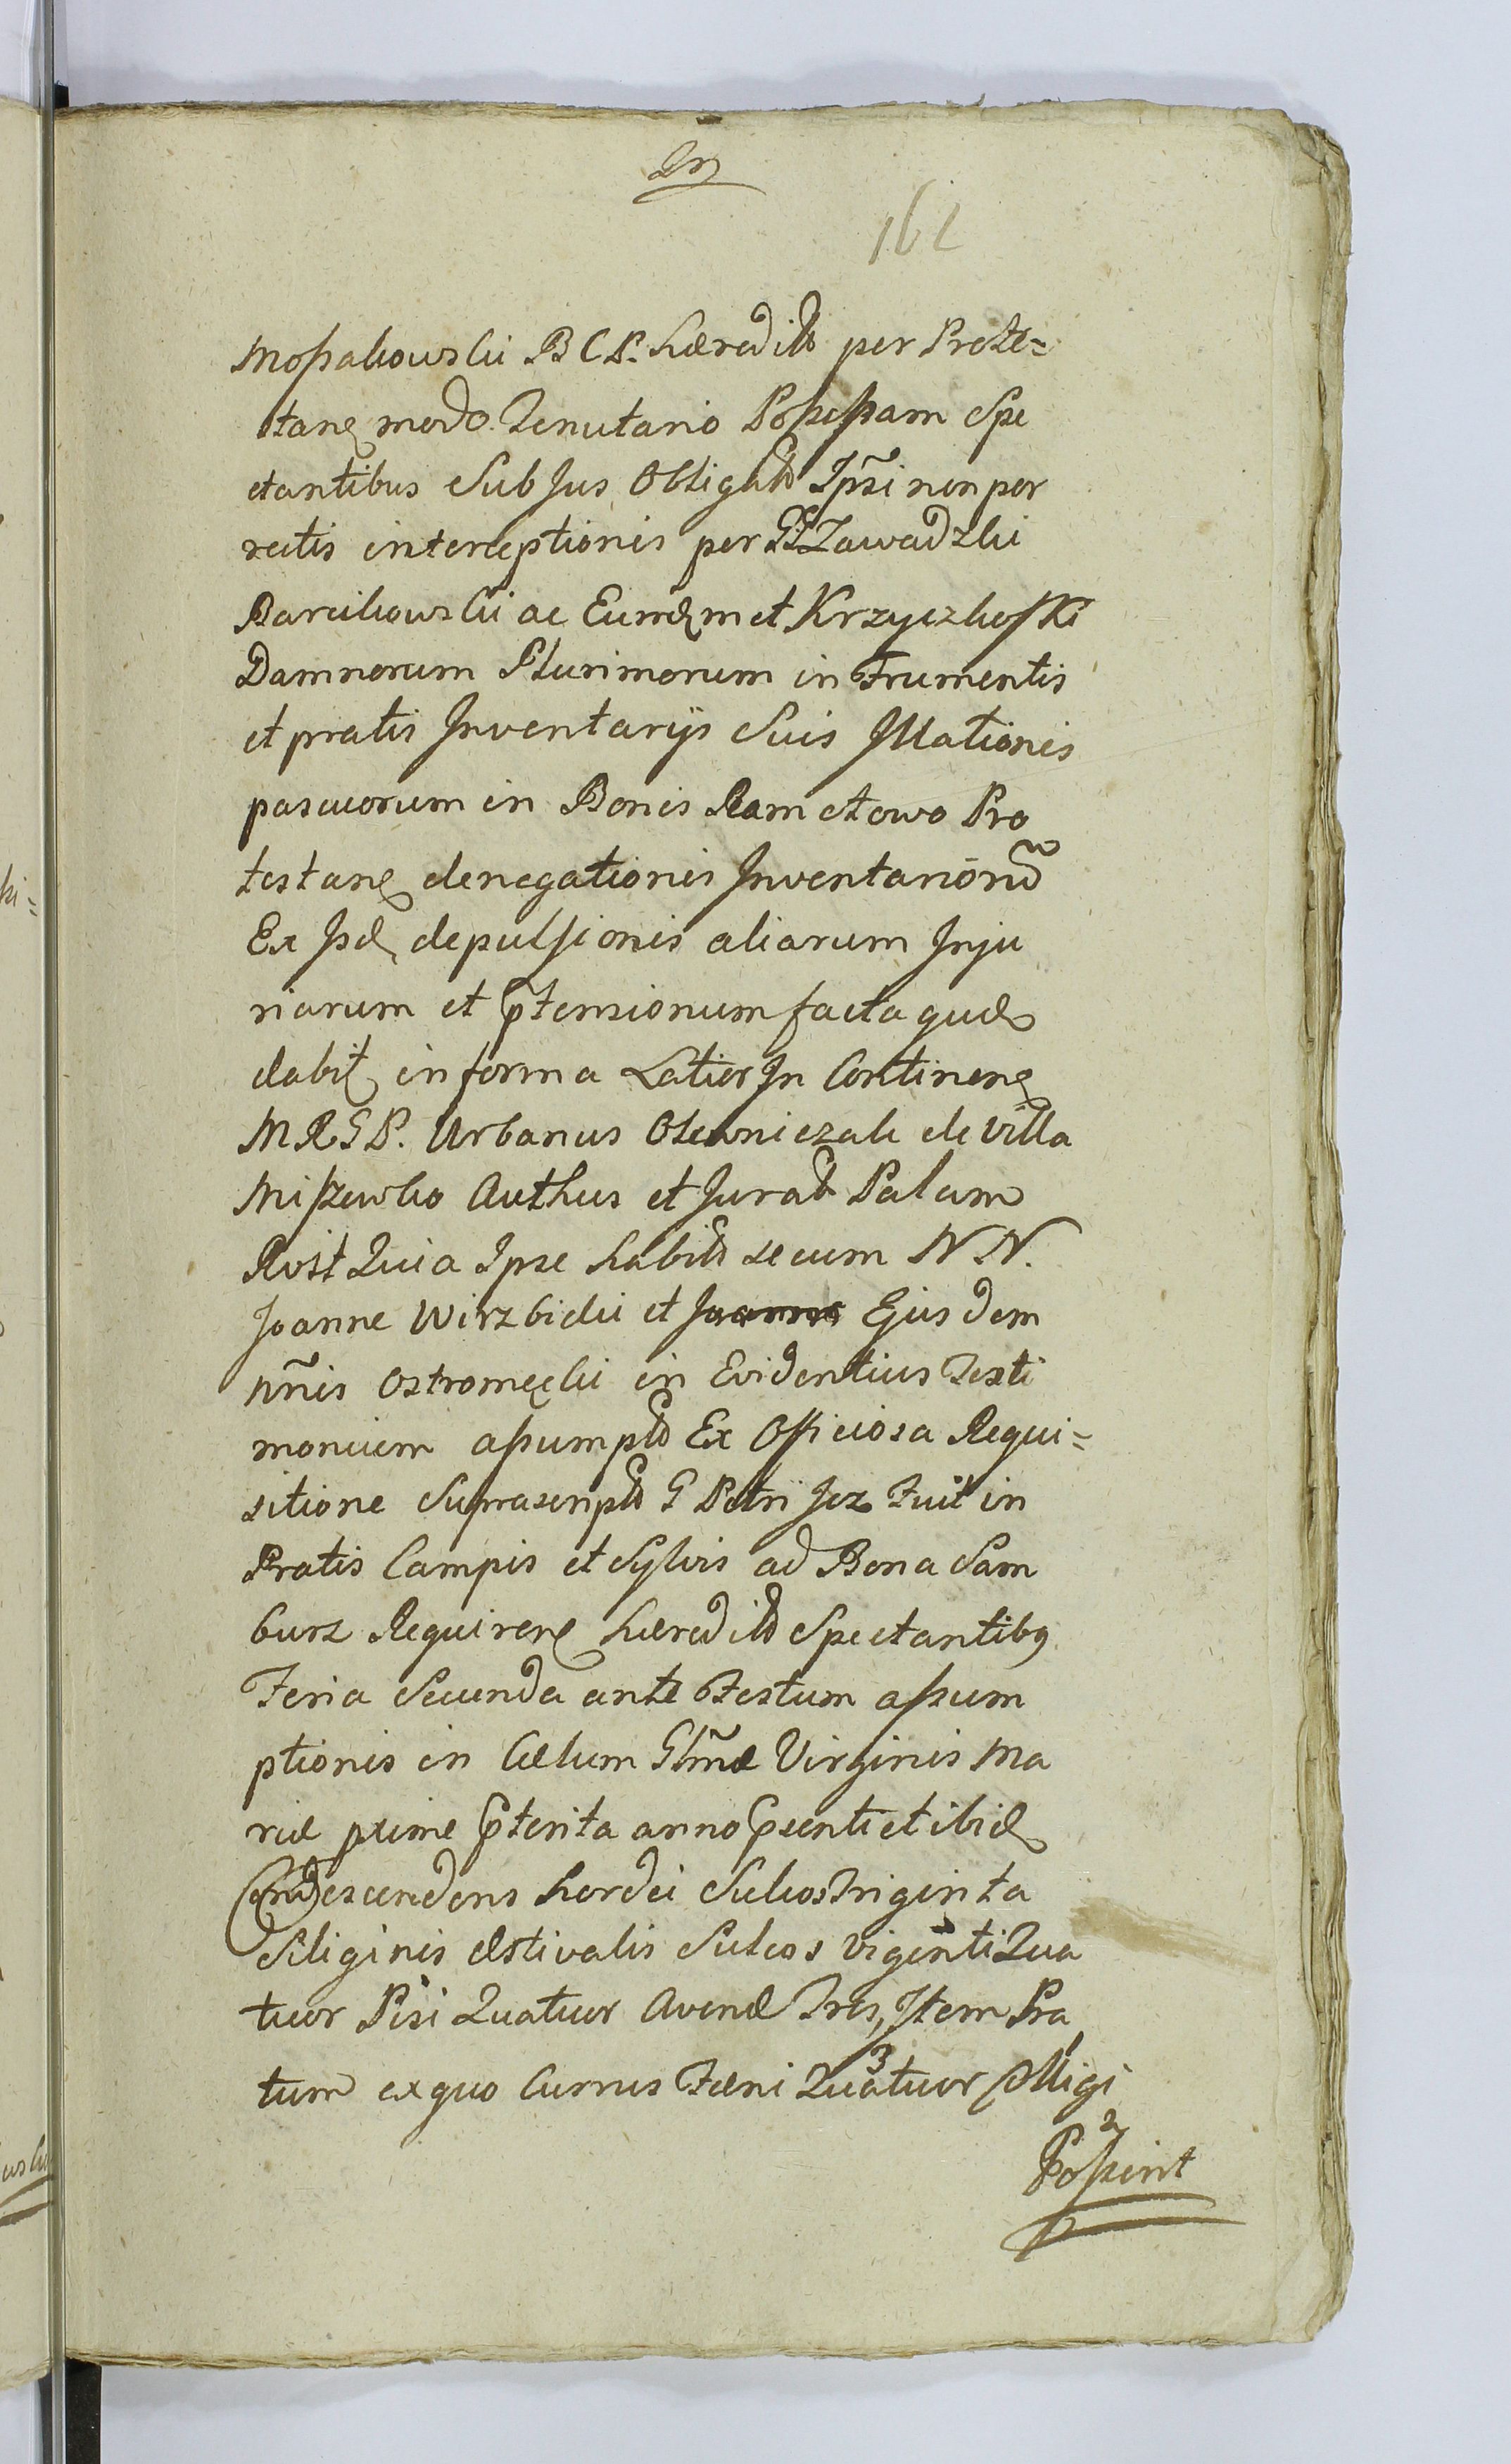 In
162
Moszakowski B C P. hæredit per Prote=
stane modo Tenutario Possessam Spe
ctantibus Sub Jus Obligat Ipsi non por
rectis interceptionis per GG Zawadzki
Barcikowski ac Eundem et Krzyczkoski
Damnorum Plurimorum in Frumentis
et pratis Inventarijs Suis Illationis
pascuorum in Bonis Rametowo Pro
testane denegationis Inventariorū
Ex Ijsd depulsionis aliarum Inju
riarum et Ptensionum facta quæ
dabit in forma Latior In Continene
M R G P. Urbanus Olewniczak de Villa
Miszewko Authus et Jurat Palam
Rvit Quia Ipse habit secum N N.
Joanne Wirzbicki et Ejusdem
Nnis Ostromęcki in Evidentius Testi
monium assumpt Ex Officiosa Requi=
sitione Suprascript G Petri Jez Fuit in
Pratis Campis et Sylvis ad Bona Sam
burz Requirene hæredit Spectantibg
Feria Secunda ante Festum assum
ptionis in Cælum Glmæ Virginis Ma
riæ pxime Pterita anno Psenti et ibid
Condescendens hordei Sulcos Triginta
Siliginis Æstivalis Sulcos viginti Qua
tuor Pisi Quatuor Avenæ Tres, Item Pra
tum ex quo Currus Fæni Quatuor colligi
3
2
Possint